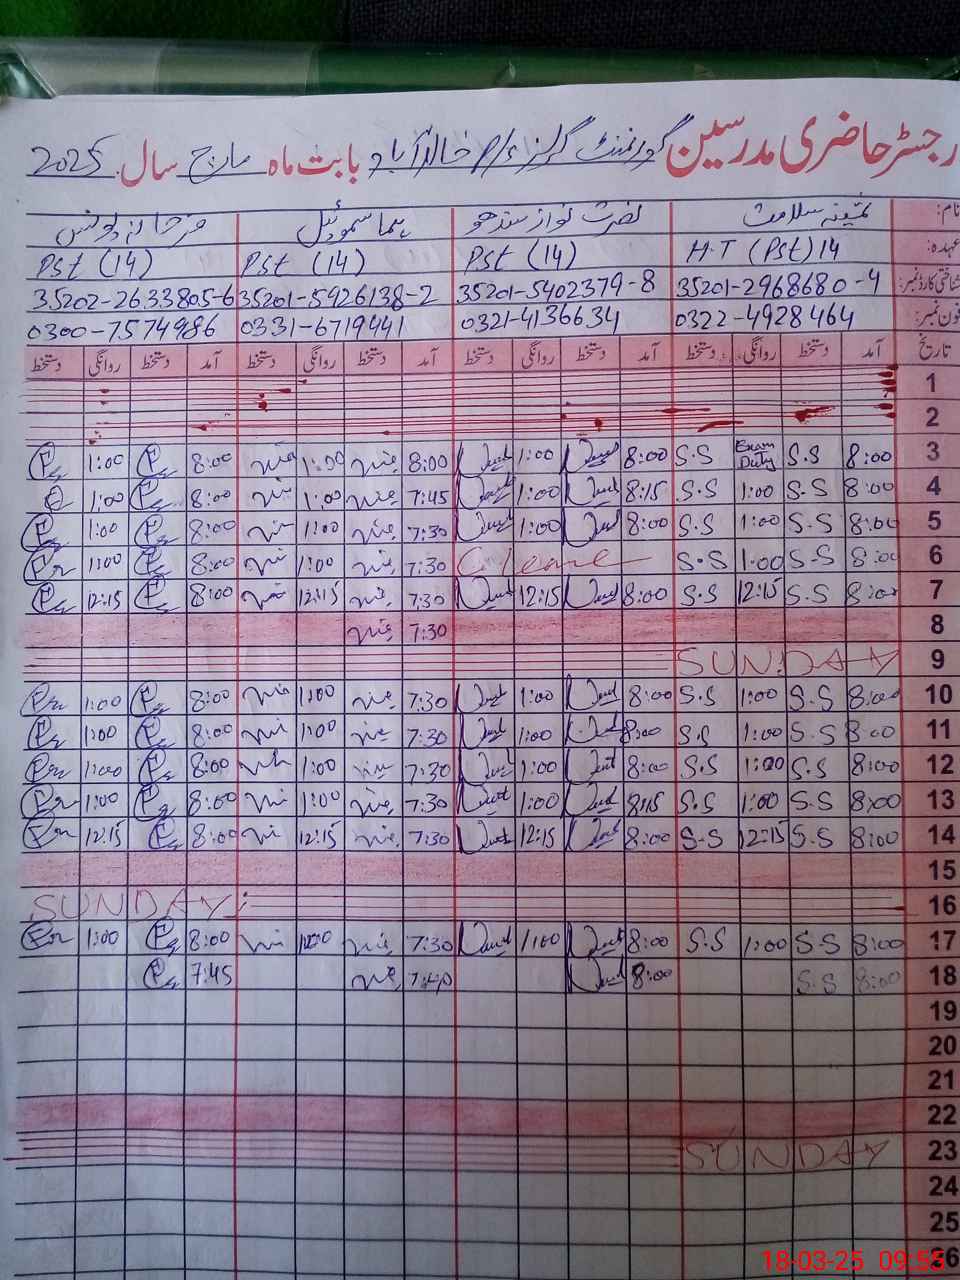 رجسٹر حاضری مدرسین گورنمنٹ گرلز p/s خالد آباد بابت ماہ مارچ سال 2025
نام: ثمینہ سلامت نصرت نواز سندھو ہما سموئیل مرجان یونس
عہدہ: H.T (Pst) 14 Pst (14) Pst (14) Pst (14)
شناختی کارڈ نمبر: 35201-2968680-4 35201-5402379-8 35201-5926138-2 35202-2633805-6
فون نمبر: 0322-4928464 0321-4136634 0331-6719441 0300-7574986
تاریخ آمد دستخط روانگی دستخط آمد دستخط روانگی دستخط آمد دستخط روانگی دستخط آمد دستخط روانگی دستخط
1
2
3 8:00 S.S Exam Duty S.S 8:00 1:00 8:00 1:00 8:00 1:00
4 8:00 S.S 1:00 S.S 8:15 1:00 7:45 1:00 8:00 1:00
5 8:00 S.S 1:00 S.S 8:00 1:00 7:30 1:00 8:00 1:00
6 8:00 S.S 1:00 S.S 7:30 1:00 8:00 1:00
7 8:00 S.S 12:15 S.S 8:00 12:15 7:30 12:15 8:00 12:15
8 7:30
9 SUNDAY
10 8:00 S.S 1:00 S.S 8:00 1:00 7:30 1:00 8:00 1:00
11 8:00 S.S 1:00 S.S 8:00 1:00 7:30 1:00 8:00 1:00
12 8:00 S.S 1:00 S.S 8:00 1:00 7:30 1:00 8:00 1:00
13 8:00 S.S 1:00 S.S 8:15 1:00 7:30 1:00 8:00 1:00
14 8:00 S.S 12:15 S.S 8:00 12:15 7:30 12:15 8:00 12:15
15
16 SUNDAY
17 8:00 S.S 1:00 S.S 8:00 1:00 7:30 1:00 8:00 1:00
18 8:00 S.S 8:00 7:40 7:45
19
20
21
22
23 SUNDAY
24
25
26
18-03-25 09:55